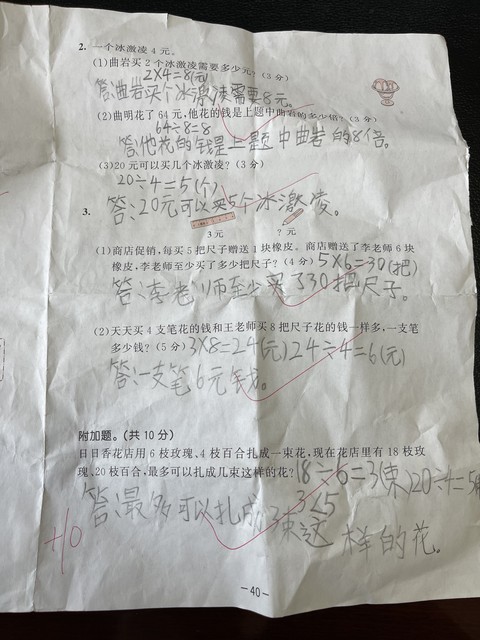 2. 一个冰激凌 4 元。
(1)曲岩买 2 个冰激凌需要多少元?(3 分)
2×4=8(元)
答:曲岩买2个冰激凌需要8元。
(2)曲明花了 64 元,他花的钱是上题中曲岩的多少倍?(3 分)
64÷8=8
答:他花的钱是上题中曲岩的8倍。
(3)20 元可以买几个冰激凌?(3 分)
20÷4=5(个)
答:20元可以买5个冰激凌。
3.
3 元 ? 元
(1)商店促销,每买 5 把尺子赠送 1 块橡皮。商店赠送了李老师 6 块
橡皮,李老师至少买了多少把尺子?(4 分) 5×6=30(把)
答:李老师至少买了30把尺子。
(2)天天买 4 支笔花的钱和王老师买 8 把尺子花的钱一样多,一支笔
多少钱?(5 分) 3×8=24(元) 24÷4=6(元)
答:一支笔6元钱。
附加题。(共 10 分)
日日香花店用 6 枝玫瑰、4 枝百合扎成一束花,现在花店里有 18 枝玫
瑰、20 枝百合,最多可以扎成几束这样的花? 18÷6=3(束) 20÷4=5(束
3<5
答:最多可以扎成3束这样的花。
+10
—40—